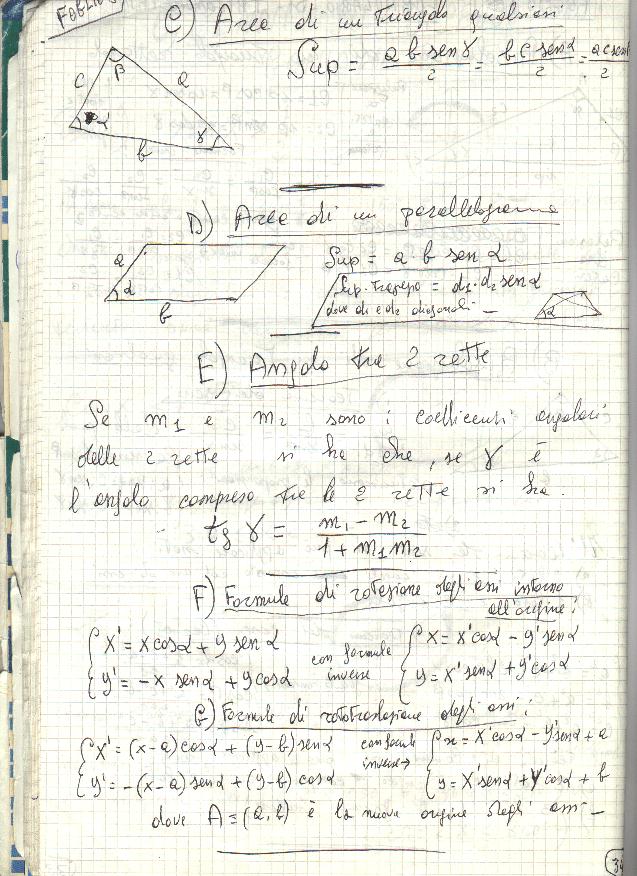 FOGLIO
C) Area di un Triangolo qualsiasi
c β a
α b γ
Sup = a b sen γ / 2 = b c sen α / 2 = a c sen / 2
D) Area di un parallelogramma
a α b
Sup = a · b sen α
Sup. Trapezio = d1 · d2 sen α
dove d1 e d2 diagonali –
α
E) Angolo tra 2 rette
Se m1 e m2 sono i coefficienti angolari
delle 2 rette si ha che, se γ è
l'angolo compreso tra le 2 rette si ha.
tg γ = m1 - m2 / 1 + m1 m2
F) Formule di rotazione degli assi intorno
all'origine:
{ X' = x cos α + y sen α
{ y' = -x sen α + y cos α
con formule
inverse
{ x = x' cos α - y' sen α
{ y = x' sen α + y' cos α
G) Formule di rototraslazione degli assi:
{ X' = (x-a) cos α + (y-b) sen α
{ y' = -(x-a) sen α + (y-b) cos α
con formule
inverse →
{ x = X' cos α - y' sen α + a
{ y = X' sen α + y' cos α + b
dove A = (a, b) è la nuova origine degli assi –